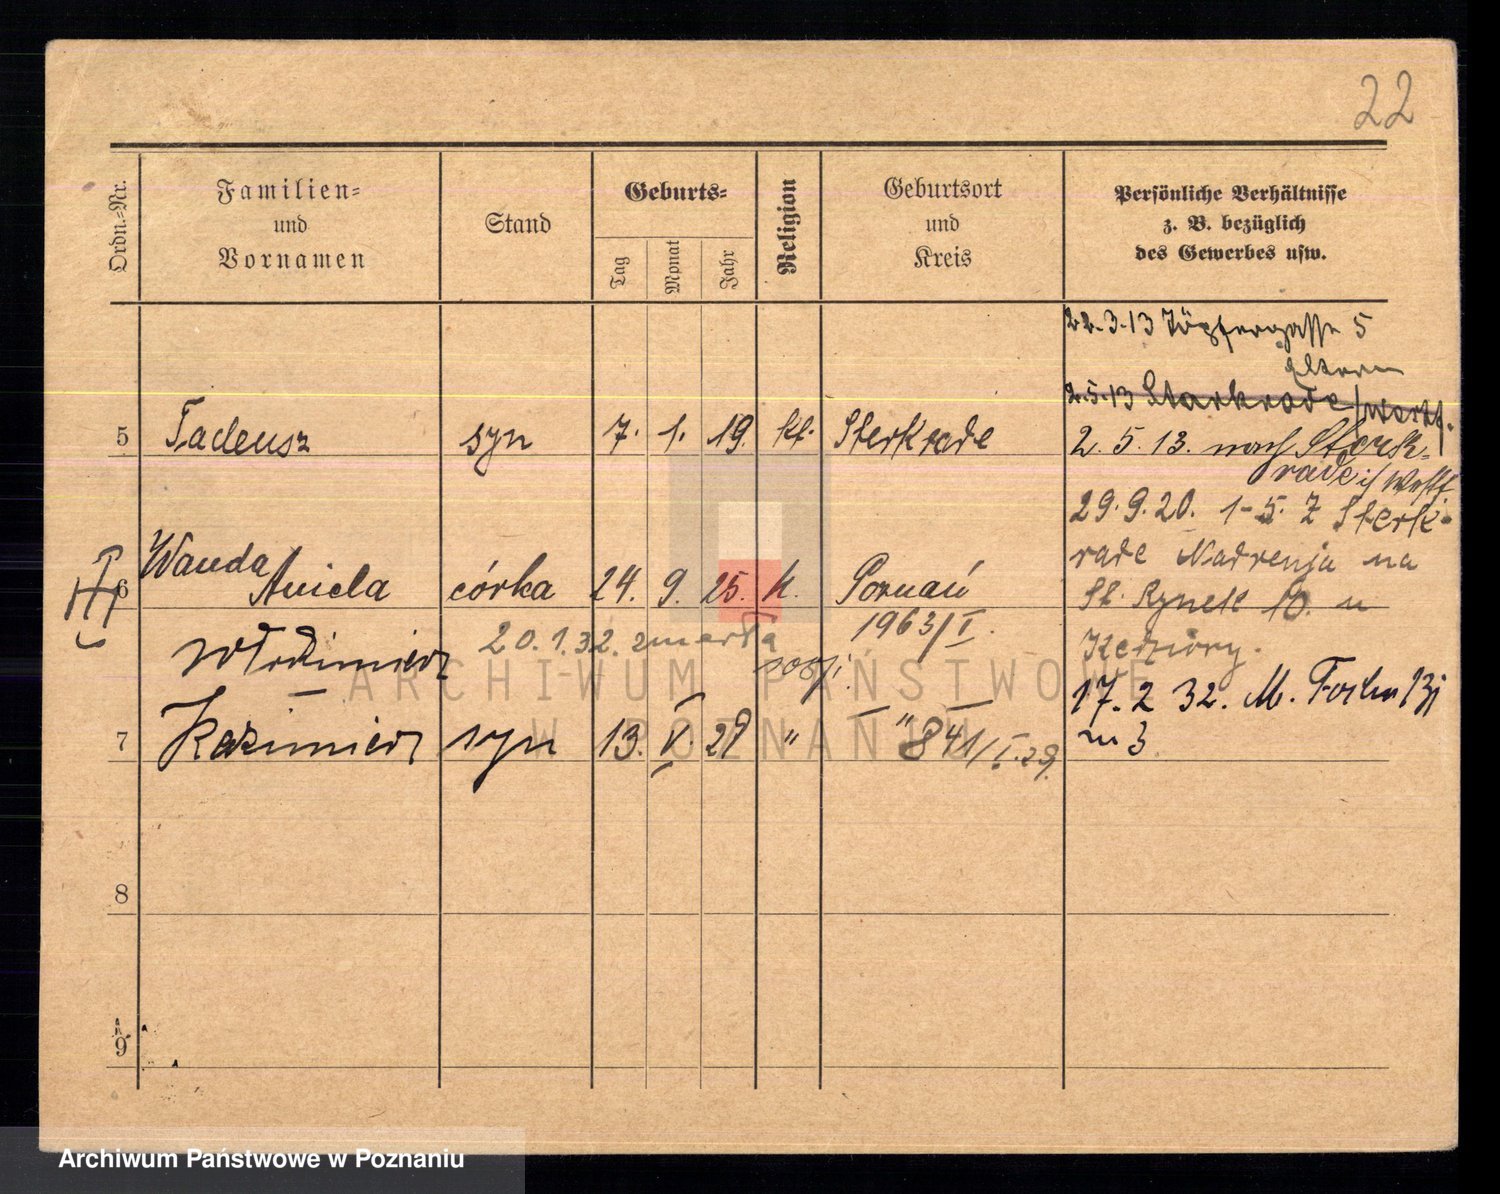 22
Ordn.=Nr.
Familien=
und
Vornamen
Stand
Geburts=
Tag
Monat
Jahr
Religion
Geburtsort
und
Kreis
Persönliche Verhältnisse
z. B. bezüglich
des Gewerbes usw.
22.3.13 Töpfergasse 5
Eltern
2.5.13 Starkrade
5 Tadeusz syn 7. 1. 19. kt. Sterkrade
2.5.13. nach Sterk=
rade i/ Westf.
29.9.20. 1-5. Z Sterk-
rade Nadrenja na
St. Rynek 10. u
6 Wanda Aniela córka 24. 9. 25. k. Poznań
1963/I.
20.1.32. zmarła
Włodzimierz
17.2 32. M. Focha
m 3
7 Kazimierz syn 13. V. 29 " " 841/I.29.
8
9
ARCHIWUM PAŃSTWOWE
W POZNANIU
Archiwum Państwowe w Poznaniu